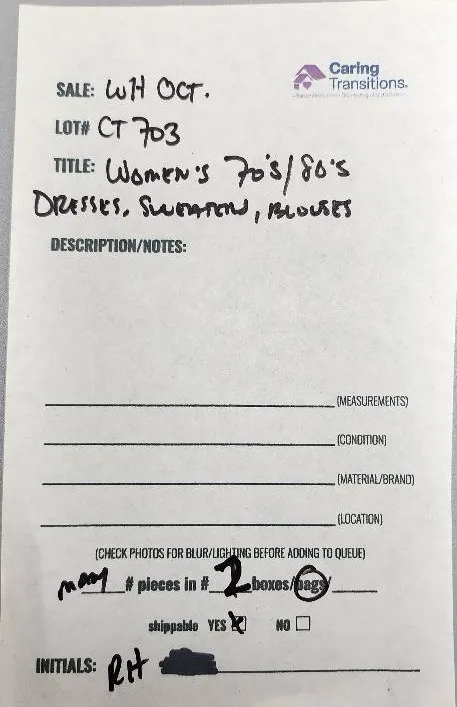 Caring
Transitions.
SALE: WH OCT.
LOT# CT 703
TITLE: WOMEN'S 70'S/80'S
DRESSES, SWEATERS, BLOUSES
DESCRIPTION/NOTES:
(MEASUREMENTS)
(CONDITION)
(MATERIAL/BRAND)
(LOCATION)
(CHECK PHOTOS FOR BLUR/LIGHTING BEFORE ADDING TO QUEUE)
many # pieces in # 2 boxes/bags/
shippable YES NO
INITIALS: RH